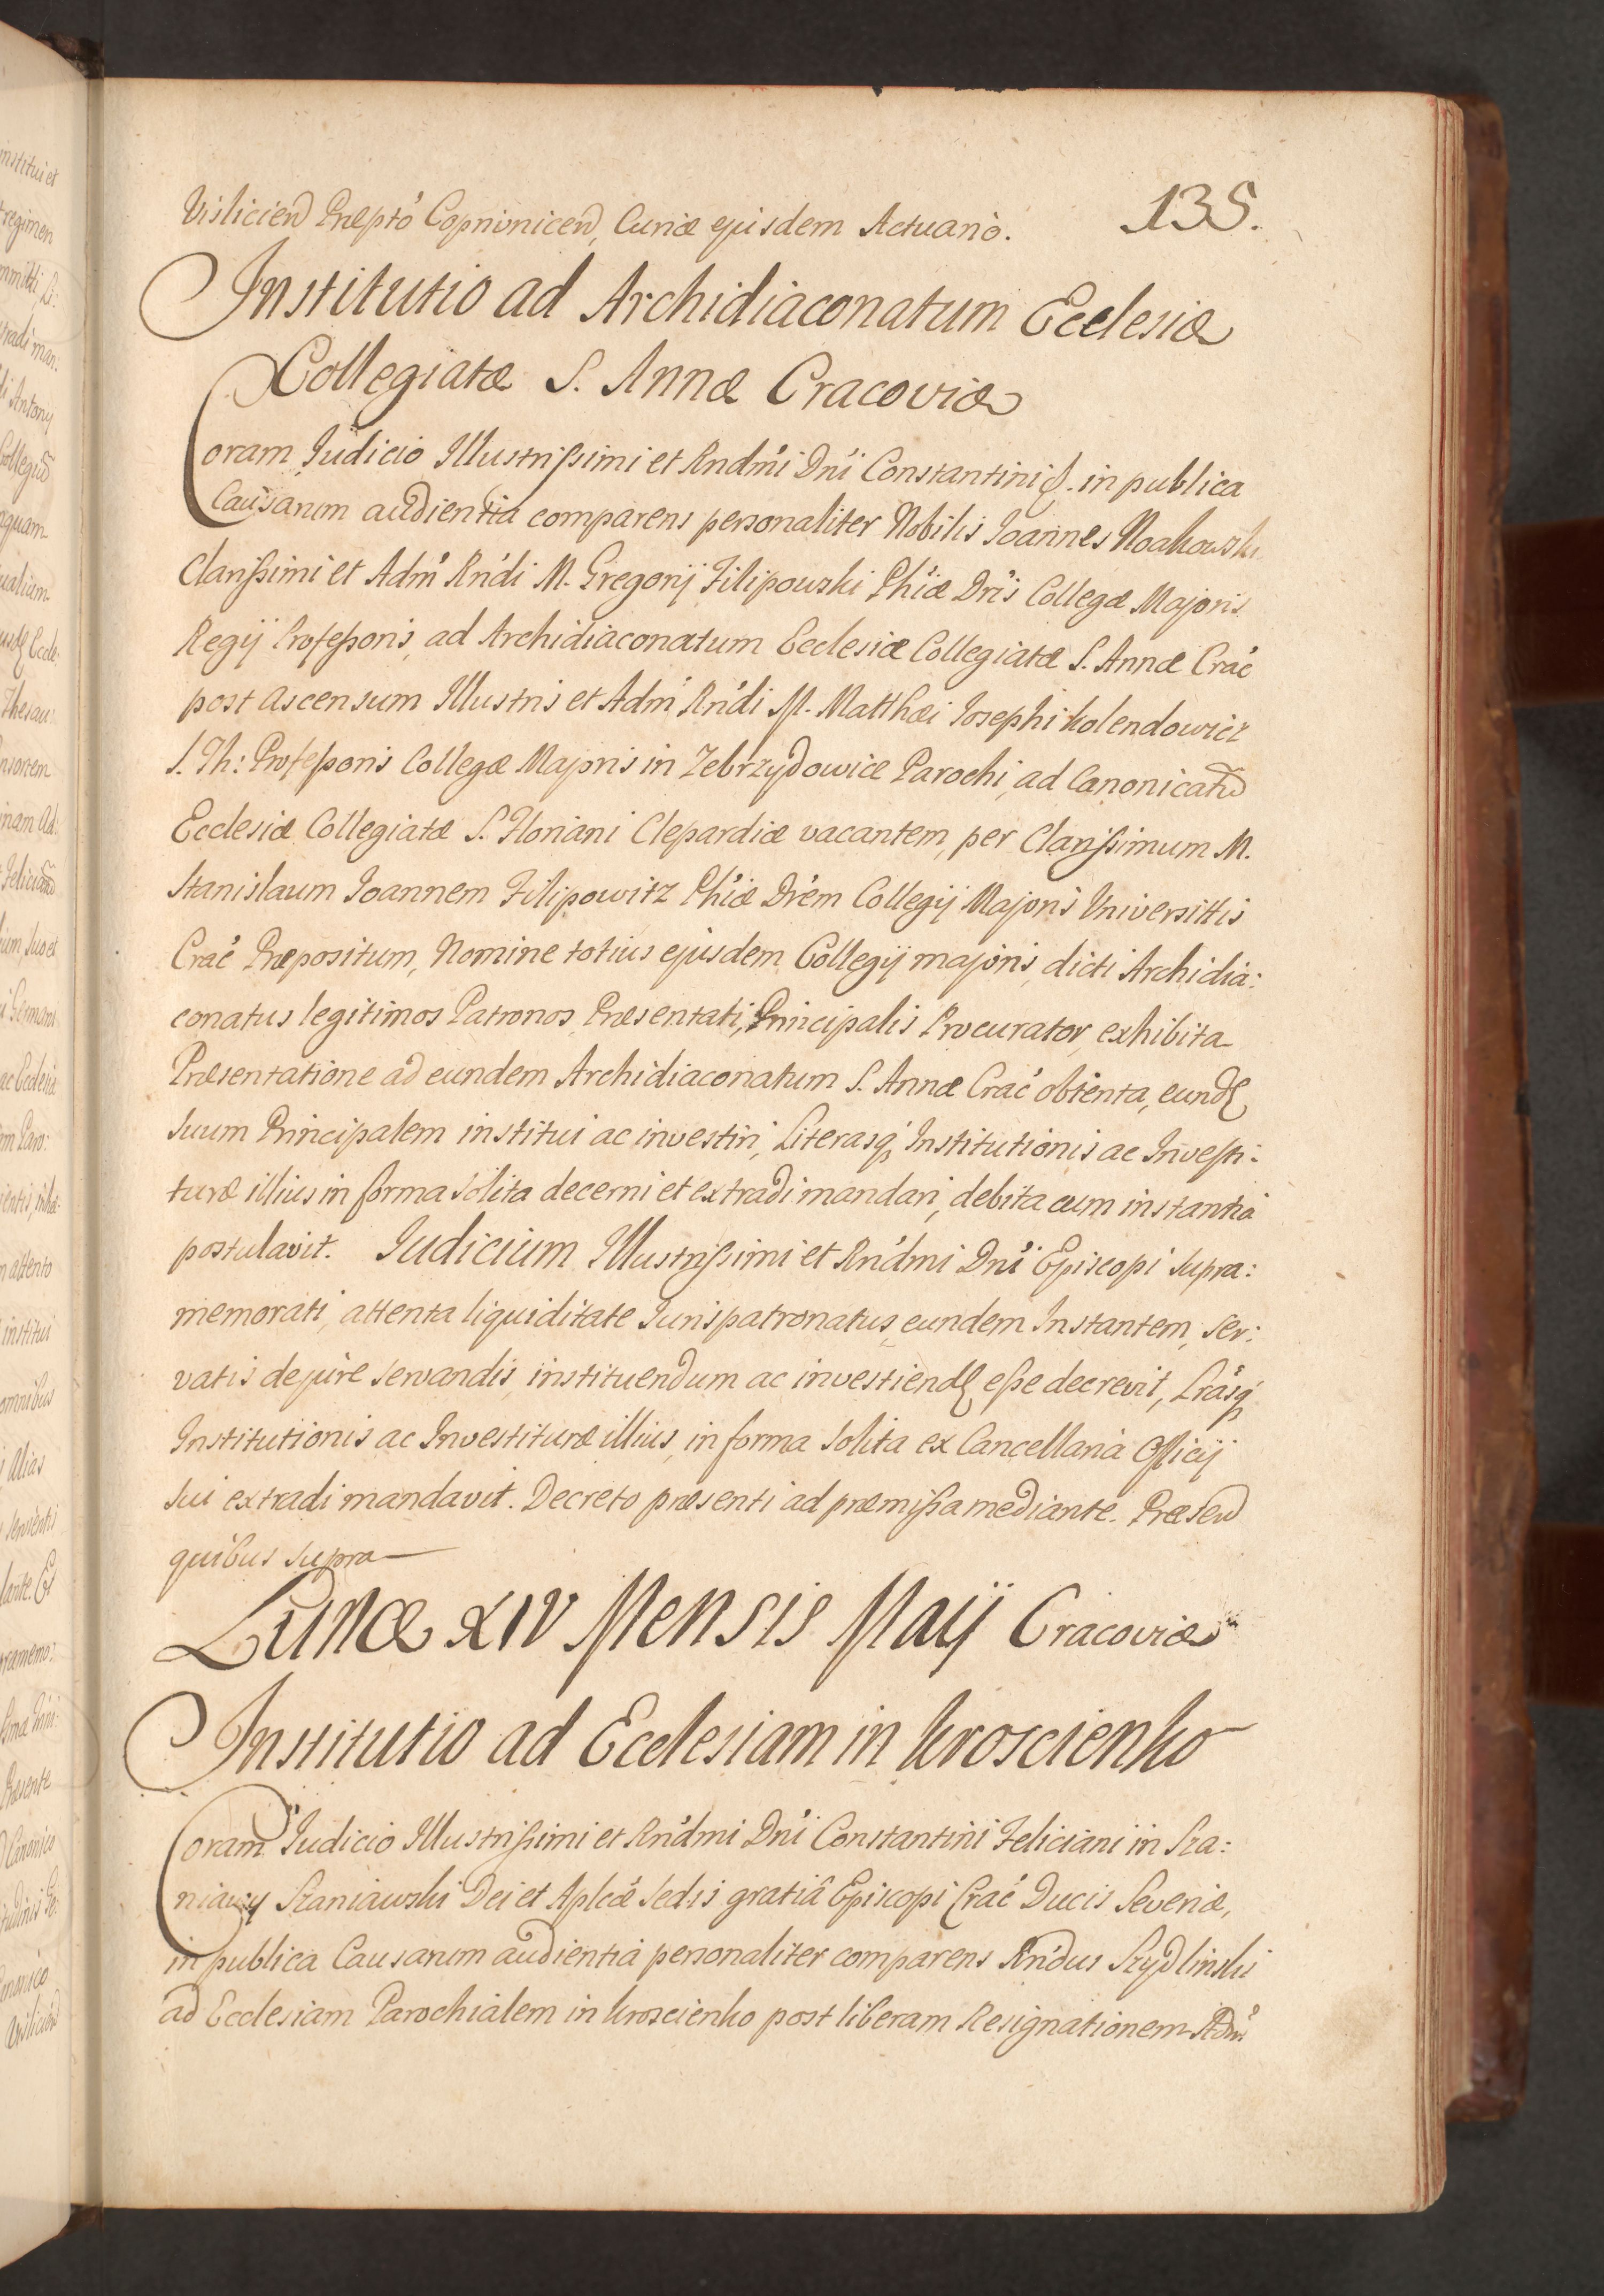 135.
Vislicien Præpto Coprivnicen, Curiæ ejusdem Actuario.
Institutio ad Archidiaconatum Ecclesiæ
Collegiatæ S. Annæ Cracoviæ
Coram Judicio Illustrissimi et Rndmi Dni Constantini &. in publica
Causarum audientia comparens personaliter Nobilis Joannes Noakowski
Clarissimi et Adm Rndi M. Gregorij Filipowski Phiæ Dris Collegæ Majoris
Regij Professoris, ad Archidiaconatum Ecclesiæ Collegiatæ S. Annæ Crac
post ascensum Illustris et Adm Rndi M. Matthæi Josephi Kolendowicz
S. Th: Professoris Collegæ Majoris in Zebrzydowice Parochi, ad Canonicatu
Ecclesiæ Collegiatæ S. Floriani Clepardiæ vacantem, per Clarissimum M.
Stanislaum Joannem Filipowitz Phiæ Drem Collegij Majoris Universittis
Crac Præpositum, Nomine totius ejusdem Collegij majoris, dicti Archidia:
conatus legitimos Patronos Præsentati, Principalis Procurator, exhibita
Præsentatione ad eundem Archidiaconatum S. Annæ Crac obtenta, eund
suum Principalem institui ac investiri, Literasq Institutionis ac Investi:
turæ illius in forma solita decerni et extradi mandari, debita cum instantia
postulavit. Judicium Illustrissimi et Rndmi Dni Episcopi supra:
memorati, attenta liquiditate Jurispatronatus, eundem Instantem, ser:
vatis de jure servandis, instituendum ac investiend esse decrevit, Lrasq
Institutionis ac Investituræ illius, in forma solita ex Cancellaria Officij
sui extradi mandavit. Decreto præsenti ad præmissa mediante. Præsen
quibus supra
Lunæ XIV Mensis Maij Cracoviæ
Institutio ad Ecclesiam in Kroscienko
Coram Judicio Illustrissimi et Rndmi Dni Constantini Feliciani in Sza:
niawy Szaniawski Dei et Aplcæ Sedis gratiâ Episcopi Crac Ducis Severiæ,
in publica Causarum audientia personaliter comparens Rndus Szydlinski
ad Ecclesiam Parochialem in Kroscienko post liberam Resignationem Adm